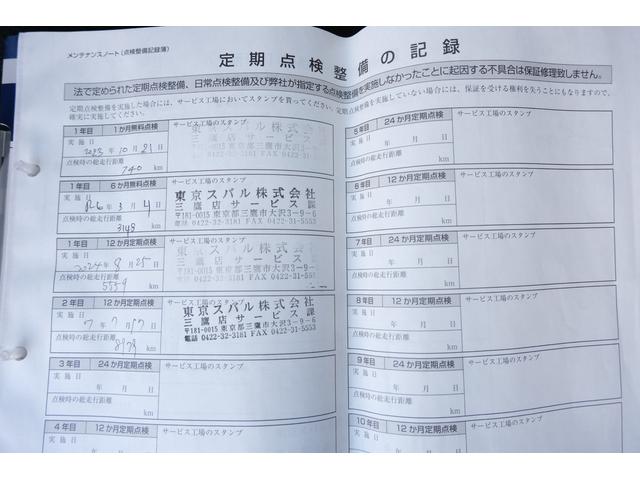 メンテナンスノート(点検整備記録簿)
定期点検整備の記録
法で定められた定期点検整備、日常点検整備及び弊社が指定する点検整備を実施しなかったことに起因する不具合は保証修理致しません。
定期点検整備を実施した場合には、サービス工場においてスタンプを貰ってください。定期点検整備を実施していない場合には、保証を受ける権利を失うこともありますので、
確実に実施してください。
1年目 1か月無料点検 サービス工場のスタンプ
実施日
2023年10月21日
点検時の総走行距離
740 km
東京スバル株式会社
三鷹店サービス課
〒181-0015 東京都三鷹市大沢3-9-6
電話 0422-32-3181 FAX 0422-31-5553
1年目 6か月無料点検 サービス工場のスタンプ
実施日
R6年3月4日
点検時の総走行距離
3148 km
東京スバル株式会社
三鷹店サービス課
〒181-0015 東京都三鷹市大沢3-9-6
電話 0422-32-3181 FAX 0422-31-5553
1年目 12か月定期点検 サービス工場のスタンプ
実施日
2024年8月25日
点検時の総走行距離
5559 km
東京スバル株式会社
三鷹店サービス課
〒181-0015 東京都三鷹市大沢3-9-6
電話 0422-32-3181 FAX 0422-31-5553
2年目 12か月定期点検 サービス工場のスタンプ
実施日
7年7月17日
点検時の総走行距離
km
東京スバル株式会社
三鷹店サービス課
〒181-0015 東京都三鷹市大沢3-9-6
電話 0422-32-3181 FAX 0422-31-5553
3年目 24か月定期点検 サービス工場のスタンプ
実施日
年 月 日
点検時の総走行距離
km
4年目 12か月定期点検 サービス工場のスタンプ
実施日
年 月 日
5年目 24か月定期点検 サービス工場のスタンプ
実施日
年 月 日
点検時の総走行距離
km
6年目 12か月定期点検 サービス工場のスタンプ
実施日
年 月 日
点検時の総走行距離
km
7年目 24か月定期点検 サービス工場のスタンプ
実施日
年 月 日
点検時の総走行距離
km
8年目 12か月定期点検 サービス工場のスタンプ
実施日
年 月 日
点検時の総走行距離
km
9年目 24か月定期点検 サービス工場のスタンプ
実施日
年 月 日
点検時の総走行距離
km
10年目 12か月定期点検 サービス工場のスタンプ
実施日
年 月 日